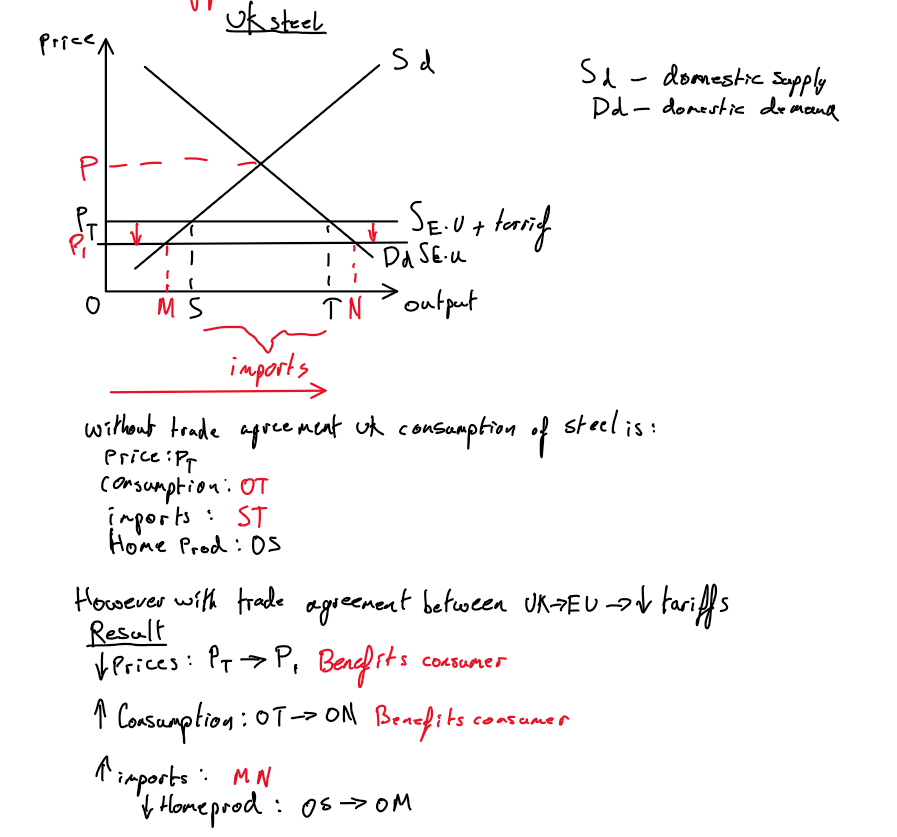 UK steel
Price
Sd
Sd - domestic supply
Dd - domestic demand
P
PT
SE.U + tarrif
P1
Dd SE.U
O
M S T N output
imports
without trade agreement UK consumption of steel is:
Price: PT
Consumption: OT
imports: ST
Home Prod: OS
However with trade agreement between UK→EU → ↓ tariffs
Result
↓Prices: PT → P1 Benefits consumer
↑ Consumption: OT → ON Benefits consumer
↑ imports: MN
↓ Homeprod: OS → OM